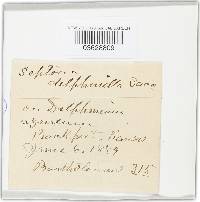 03628809
Septoria
delphinella Sacc
on Delphinium
azureum
Rockport, Kansas
June 6, 1889
Bartholomew 315